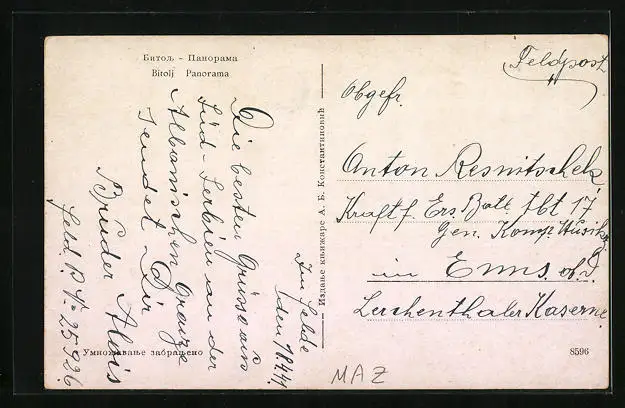 Битољ - Панорама
Bitolj Panorama
Die besten Grüsse aus
Süd-Serbien an der
Albanischen Grenze
sendet Dir
Bruder Alois
Feld. P. N= 25926
Im Felde
den 18.4.41
Умножавање забрањено
Издање књижаре А. Б. Константиновић
Feldpost
Obgefr.
Anton Resnitschek
Kraftf. Ers. Batt. Abt 17
Gen. Komp.
in Enns. ob. D.
Lerchenthaler Kaserne
8596
MAZ